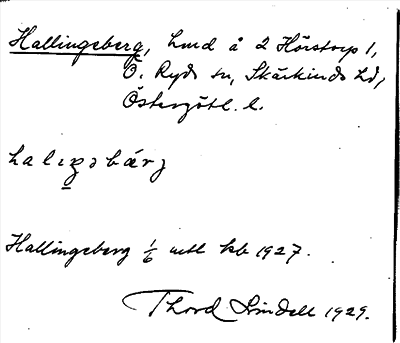 Hallingeberg, lmd å 2 Hörstorp 1,
Ö. Ryds sn, Skärkinds hd,
Östergötl. l.
Hallingeberg 1/6 mtl kb 1927.
Thord Lindell 1929.